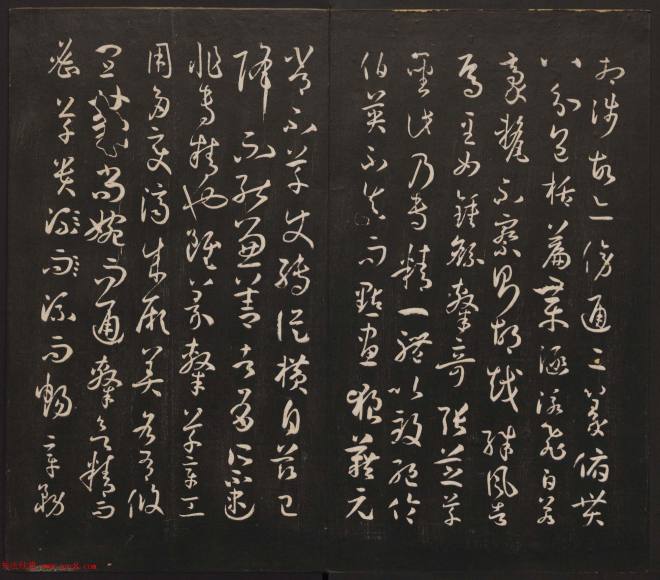 相涉故亦傍通二篆俯貫
八分包括篇章涵泳飛白若
毫釐不察則胡越殊風者
焉至如鍾繇隸奇張芝草
聖此乃專精一體以致絕倫
伯英不真而點畫狼藉元
常不草使轉縱橫自茲已
降不能兼善者有所不逮
非專精也雖篆隸草章工
用多變濟成厥美各有攸
宜篆尚婉而通隸欲精而
密草貴流而流而暢章務
书法欣赏 www.yac8.com